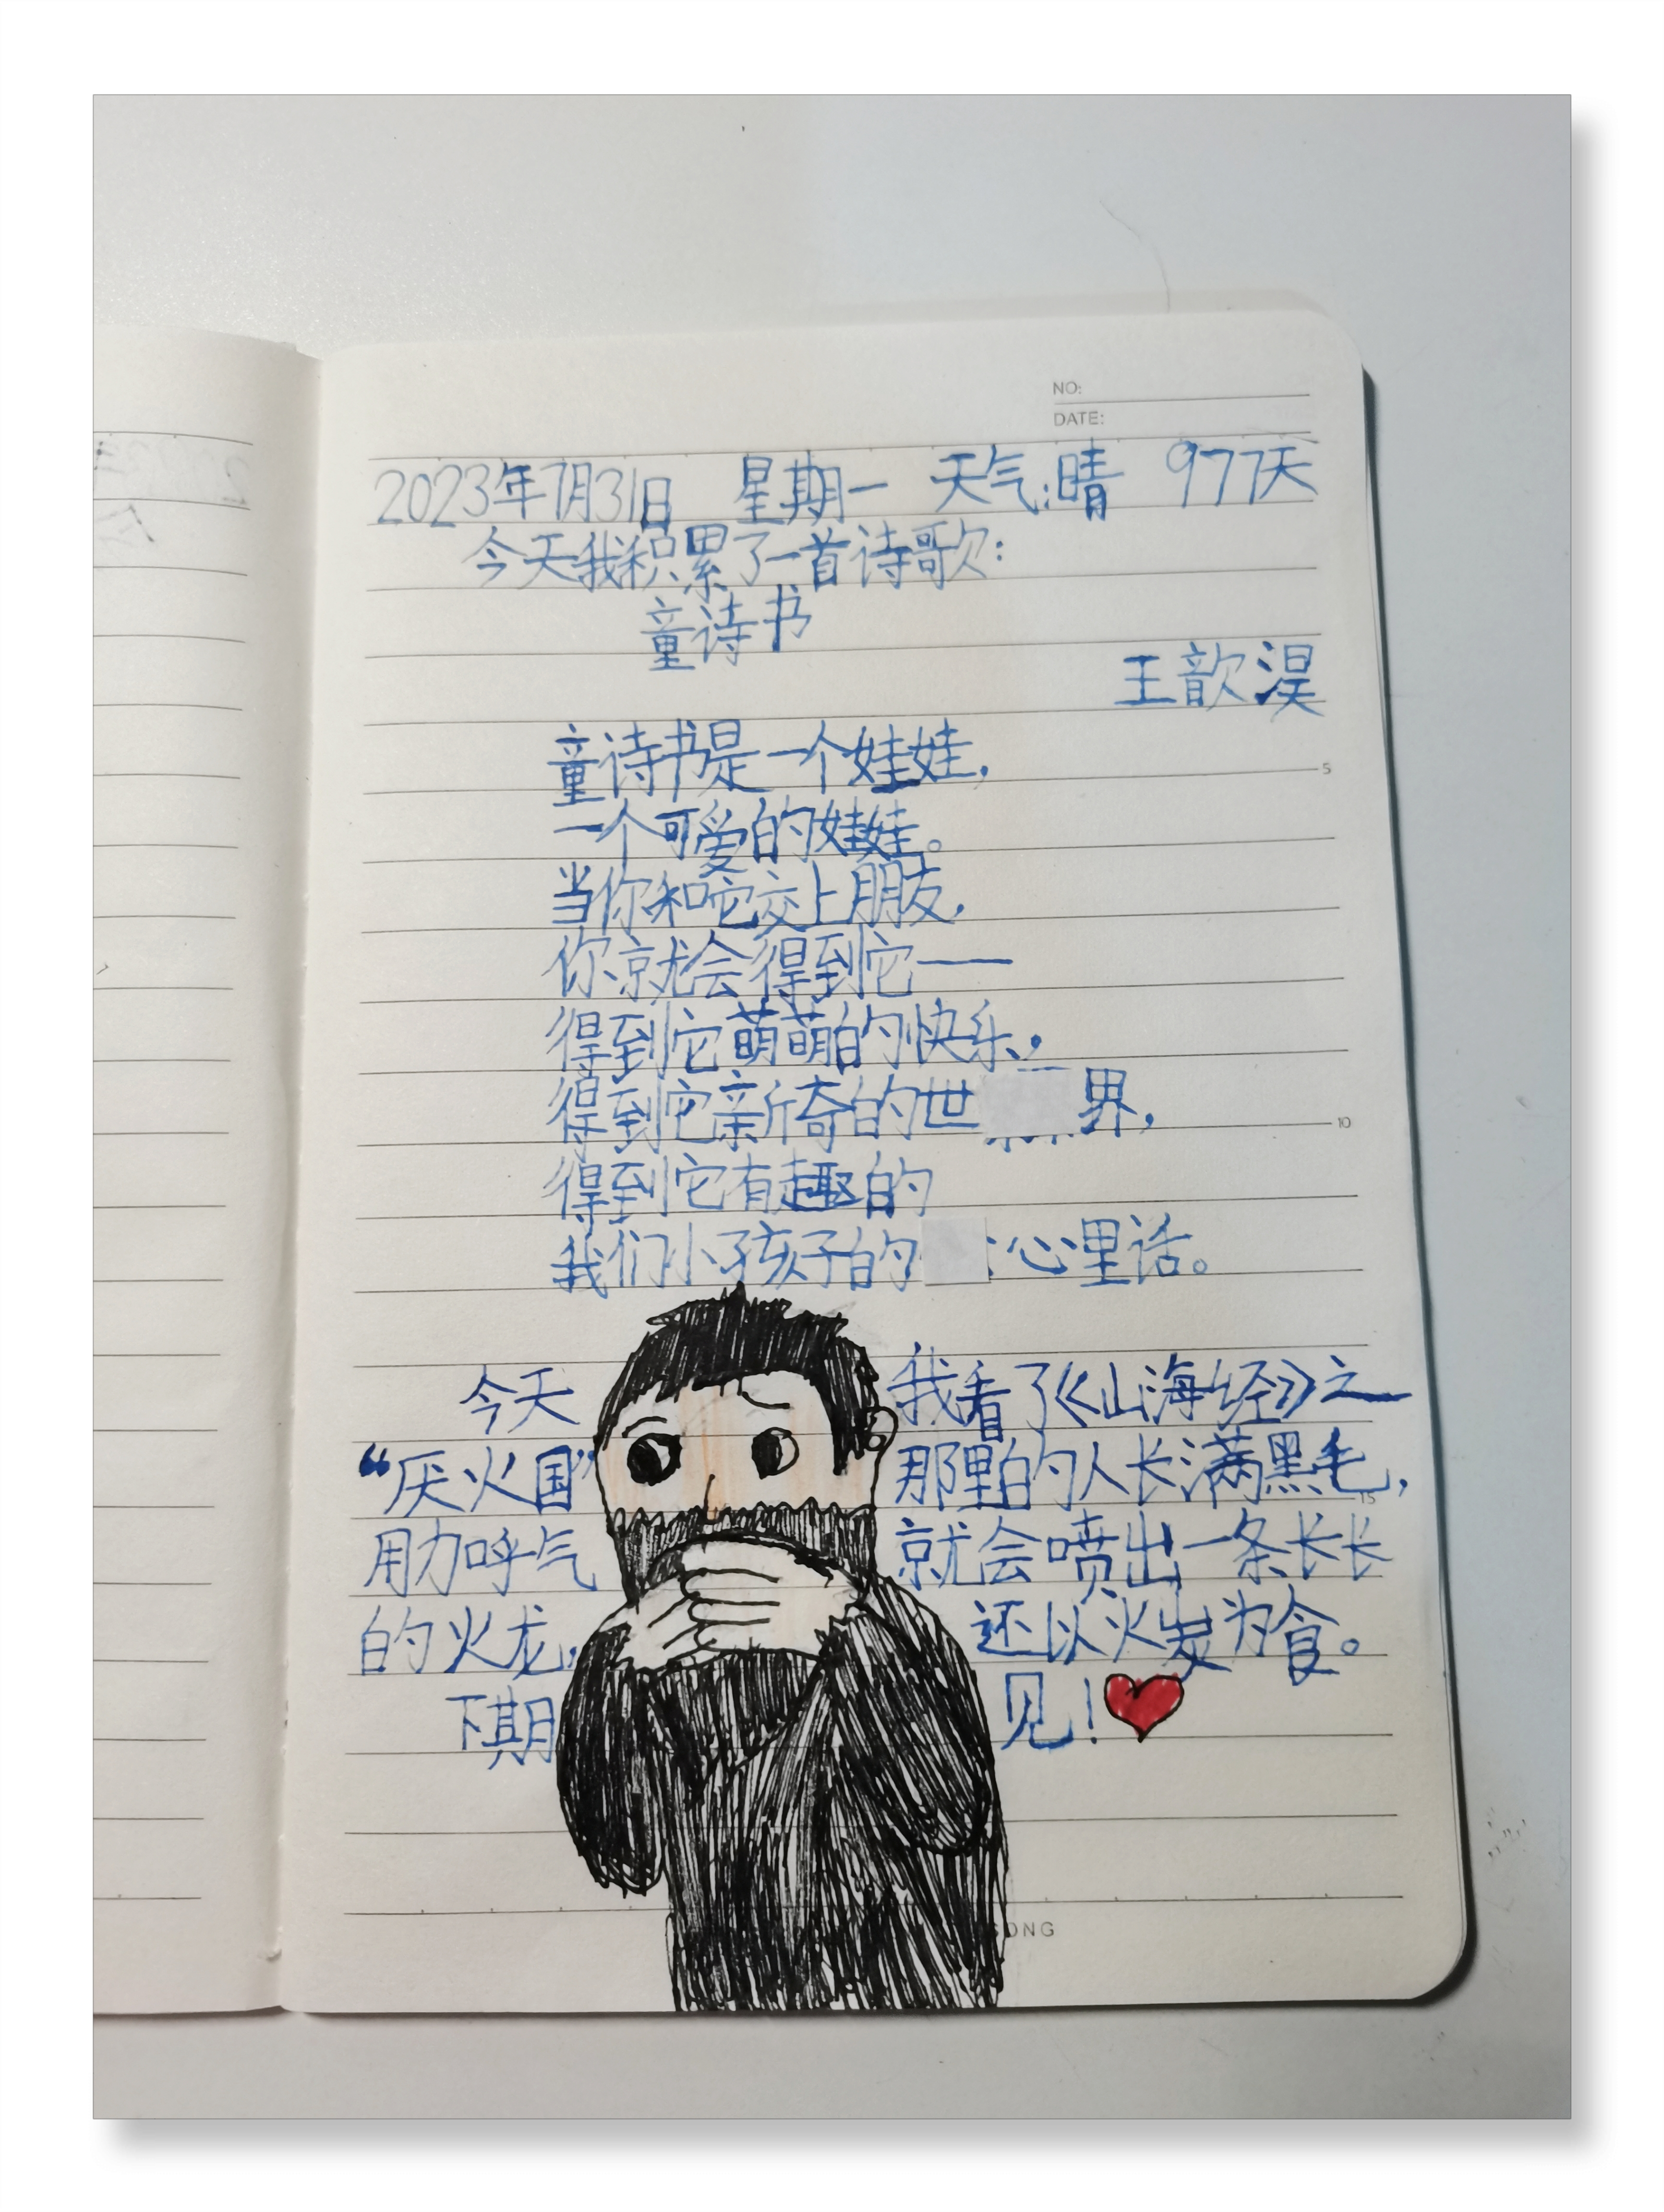 NO:
DATE:
2023年7月31日 星期一 天气:晴 977天
今天我积累了一首诗歌:
童诗书
王歆淏
童诗书是一个娃娃,
一个可爱的娃娃。
当你和它交上朋友,
你就会得到它——
得到它萌萌的快乐,
得到它新奇的世界,
得到它有趣的
我们小孩子的心里话。
今天我看了《山海经》之
“厌火国”那里的人长满黑毛,
用力呼气就会喷出一条长长
的火龙,还以火炭为食。
下期见!
5
10
15
ONG